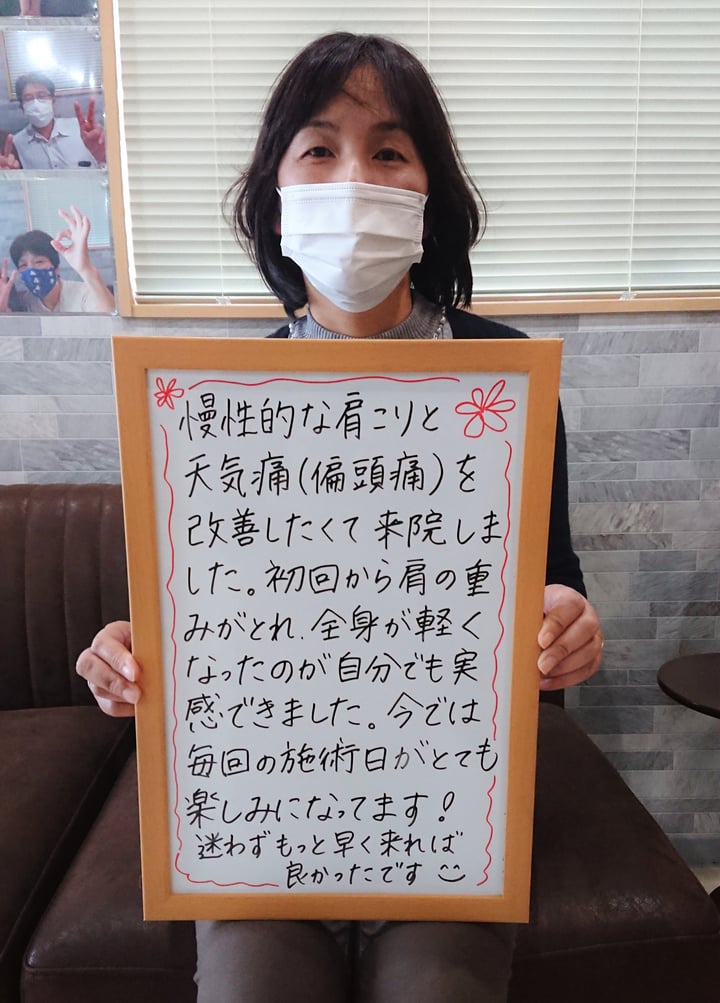 慢性的な肩こりと
天気痛(偏頭痛)を
改善したくて来院しま
した。初回から肩の重
みがとれ、全身が軽く
なったのが自分でも実
感できました。今では
毎回の施術日がとても
楽しみになってます!
迷わずもっと早く来れば
良かったです